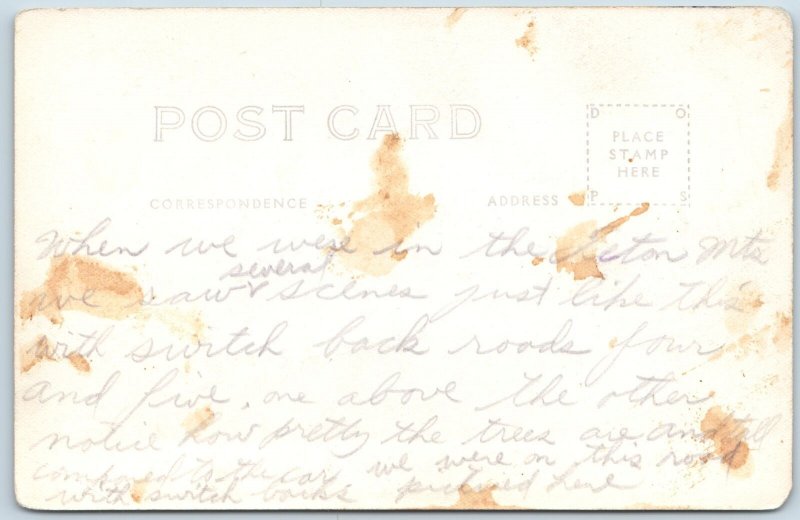 POST CARD
D O
PLACE
STAMP
HERE
P S
CORRESPONDENCE ADDRESS
When we were in the Teton Mts
several
we saw scenes just like this
with switch back roads four
and five, one above the other
notice how pretty the trees are and tall
compared to the car we were on this road
with switch backs pictured here